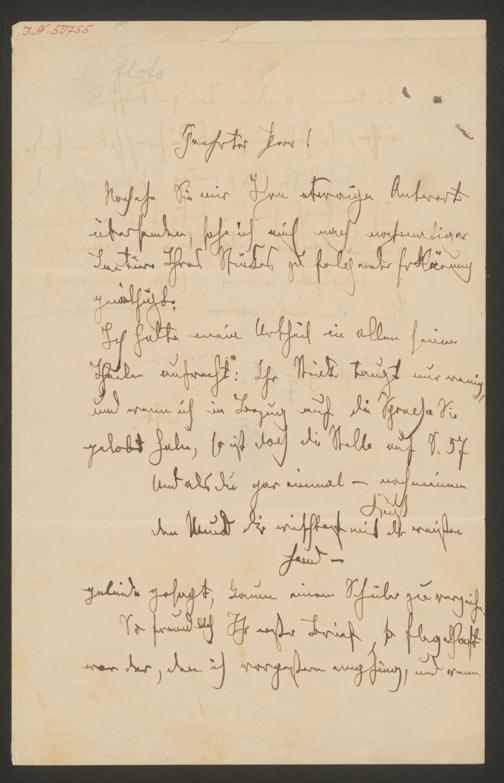 I.N. 50755
Geehrter Herr!
Nachdem Sie mir Ihre etwaige Antwort
übersenden, sehe ich mich nach nochmaliger
Lectüre Ihres Stückes zu folgender Erklärung
genöthigt:
Ich halte mein Urtheil in allen seinen
Theilen aufrecht: Ihr Stück taugt nur wenig,
und wenn ich in Bezug auf die Sprache Sie
gelobt habe, so ist doch die Stelle auf S. 57
Und als die gar einmal – nach meinem
Kuß
den Mund dir wischtest mit der weißen
Hand –
gelinde gesagt, kaum einem Schüler zu verzeihen.
So freundlich Ihr erster Brief, so flegelhaft
war der, den ich vorgestern empfing, und wenn